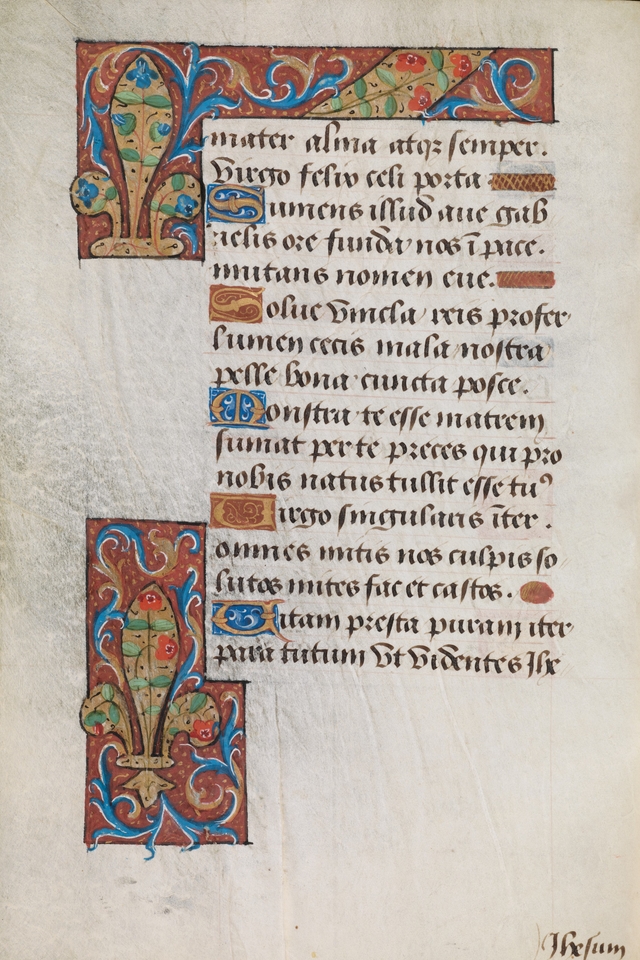 mater alma atqz semper.
Virgo felix celi porta
Sumens illud aue gab
rielis ore funda nos ī pace.
mutans nomen eue.
Solue vincla reis profer
lumen cecis mala nostra
pelle bona cuncta posce.
Monstra te esse matrem
sumat per te preces qui pro
nobis natus tullit esse tuꝰ
Virgo singularis īter.
omnes mitis nos culpis so
lutos mites fac et castos.
Vitam presta puram iter
para tutum vt videntes Ihe
Ihesum